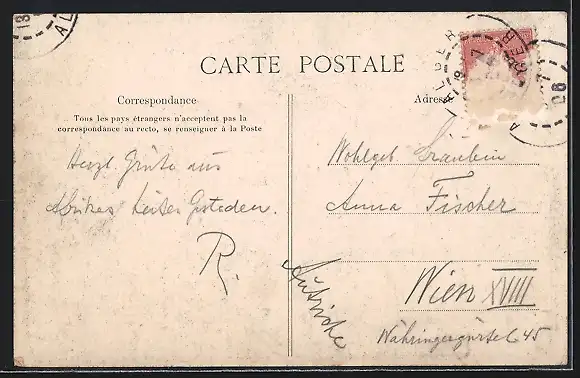 CARTE POSTALE
Correspondance
Tous les pays étrangers n'acceptent pas la
correspondance au recto, se renseigner à la Poste
Adresse
ALGER
Herzl. Grüße aus
Afrikas heißen Gestaden.
R.
Wohlgeb Fräulein
Anna Fischer
Wien XVIII
Währingergürtel 45
Autriche